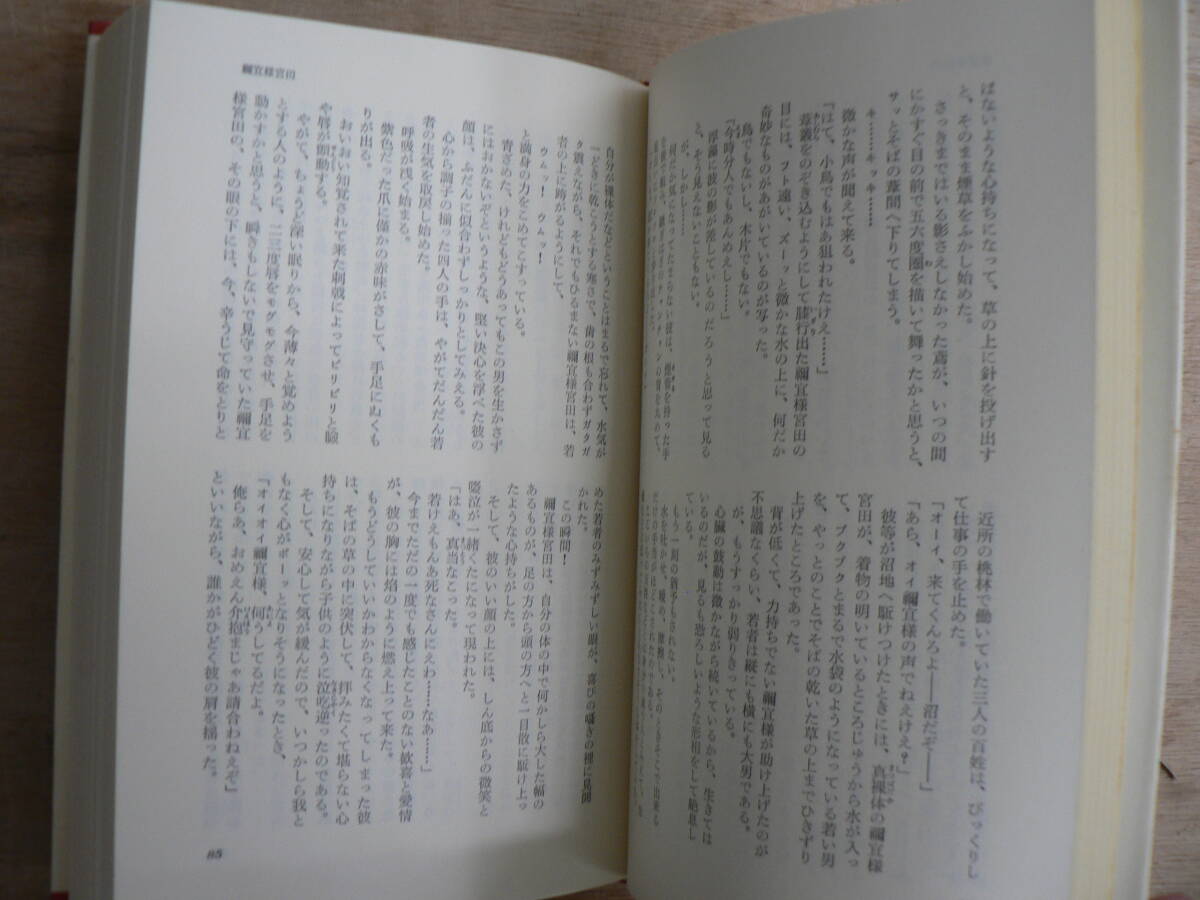 ばないような心持ちになって、草の上に針を投げ出す
と、そのまま煙草をふかし始めた。
さっきまではいる影さえしなかった鳶が、いつの間
にかすぐ目の前で五六度圏を描いて舞ったかと思うと、
サッとそばの葦間へ下りてしまう。
キ……キッキ……
微かな声が聞えて来る。
「はて、小鳥でもはあ狙われたけえ……」
葦叢をのぞき込むようにして膝行出た禰宜様宮田の
目には、フト遠い、ズーッと微かな水の上に、何だか
奇妙なものがあがいているのが写った。
鳥でもないし、木片でもない。
「今時分人でもあんめえし……」
浮藻に波の影が差しているのだろうと思って見る
と、そう見えないこともない。
が、しかし……
近所の桃林で働いていた三人の百姓は、びっくりし
て仕事の手を止めた。
「オーイ、来てくんろよ――沼だぞ――」
「あら、オイ禰宜様の声でねえけえ？」
彼等が沼地へ駈けつけたときには、真裸体の禰宜様
宮田が、着物の明いているところじゅうから水が入っ
て、ブクブクとまるで水袋のようになっている若い男
を、やっとのことでそばの乾いた草の上までひきずり
上げたところであった。
背が低くて、力持ちでない禰宜様が助け上げたのが
不思議なくらい、若者は縦にも横にも大男である。
が、もうすっかり弱りきっている。
心臓の鼓動は微かながら続いているから、生きては
いるのだが、見るも恐ろしいような形相をして絶息し
ている。
もう一刻の猶予もされない。
禰宜様宮田
自分が裸体だなどということはまるで忘れて、水気が
一どきに乾こうとする寒さで、歯の根も合わずガタガ
タ震えながら、それでもひるまない禰宜様宮田は、若
者の上に跨がるようにして、
ウムー！　ウムッ！
と満身の力をこめてこすっている。
青ざめた、けれどもどうあってもこの男を生かさず
にはおかないぞというような、堅い決心を浮べた彼の
顔は、ふだんに似合わずしっかりとしてみえる。
心から調子の揃った四人の手は、やがてだんだん若
者の生気を取戻し始めた。
呼吸が浅く始まる。
紫色だった爪に僅かの赤味がさして、手足にぬくも
りが出る。
おいおい知覚されて来た刺戟によってピリピリと瞼
や唇が顫動する。
やがて、ちょうど深い眠りから、今薄々と覚めよう
とする人のように、二三度唇をモグモグさせ、手足を
動かすかと思うと、瞬きもしないで見守っていた禰宜
様宮田の、その眼の下には、今、辛うじて命をとりと
めた若者のみずみずしい眼が、喜びの囁きの裡に見開
かれた。
この瞬間！
禰宜様宮田は、自分の体の中で何かしら大した幅の
あるものが、足の方から頭の方へと一目散に駈け上っ
たような心持ちがした。
そして、彼のいい顔の上には、しん底からの微笑と
嗟泣が一緒くたになって現われた。
「はあ、真当なこった。
若けえもんあ死なさんにえわ……なあ……」
今までただの一度でも感じたことのない歓喜と愛情
が、彼の胸には焔のように燃え上って来た。
もうどうしていいかわからなくなってしまった彼
は、そばの草の中に突伏して、拝みたくて堪らない心
持ちになりながら子供のように泣吃逆ったのである。
そして、安心して気が緩んだので、いつかしら我と
もなく心がボーッとなりそうになったとき、
「オイオイ禰宜様、何うしてるだよ。
俺らあ、おめえん介抱まじゃあ請合わねえぞ」
といいながら、誰かがひどく彼の肩を揺った。
85